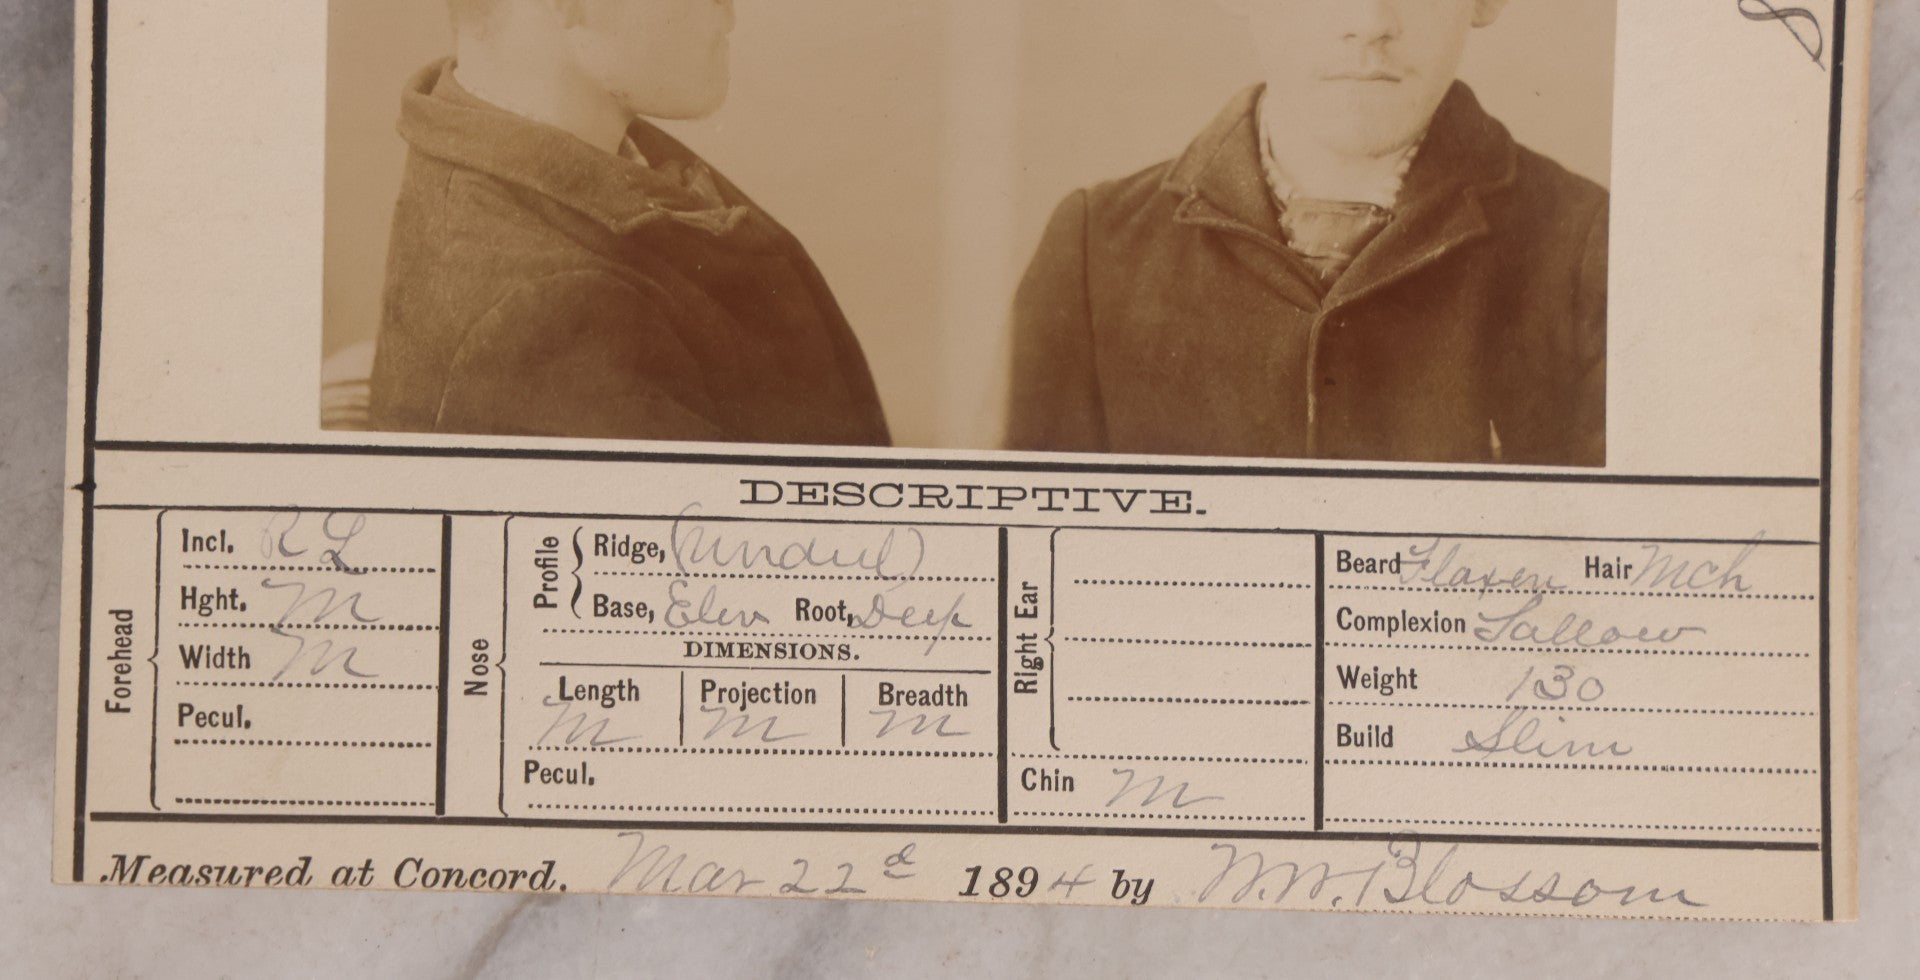 8
DESCRIPTIVE.
Forehead
Incl. R L
Hght. M
Width M
Pecul.
Nose
Profile
Ridge, (Undul)
Base, Elev Root, Deep
DIMENSIONS.
Length Projection Breadth
M M M
Pecul.
Right Ear
Chin M
Beard Flaxen Hair Mch
Complexion Sallow
Weight 130
Build Slim
Measured at Concord. Mar 22d 1894 by W.W. Blossom